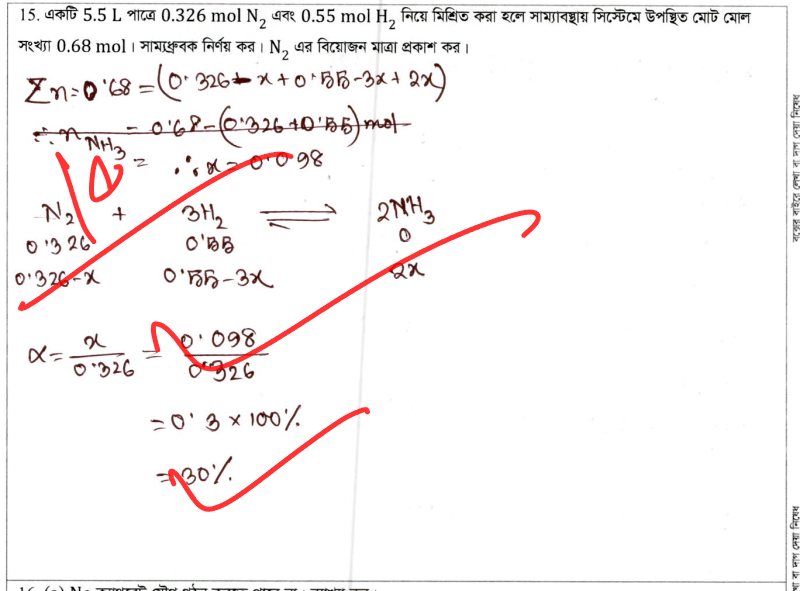 15. একটি 5.5 L পাত্রে 0.326 mol N₂ এবং 0.55 mol H₂ নিয়ে মিশ্রিত করা হলে সাম্যাবস্থায় সিস্টেমে উপস্থিত মোট মোল
সংখ্যা 0.68 mol। সাম্যধ্রুবক নির্ণয় কর। N₂ এর বিয়োজন মাত্রা প্রকাশ কর।
Σn = 0.68 = (0.326 - x + 0.55 - 3x + 2x)
∴ n NH₃ = 0.68 - (0.326 + 0.55) mol
= ∴ x = 0.098
N₂ + 3H₂ ⇌ 2NH₃
0.326 0.55 0
0.326-x 0.55-3x 2x
α = x/0.326 = 0.098/0.326
= 0.3 × 100%
= 30%
বক্সের বাইরে লেখা বা দাগ দেয়া নিষেধ
খা বা দাগ দেয়া নিষেধ